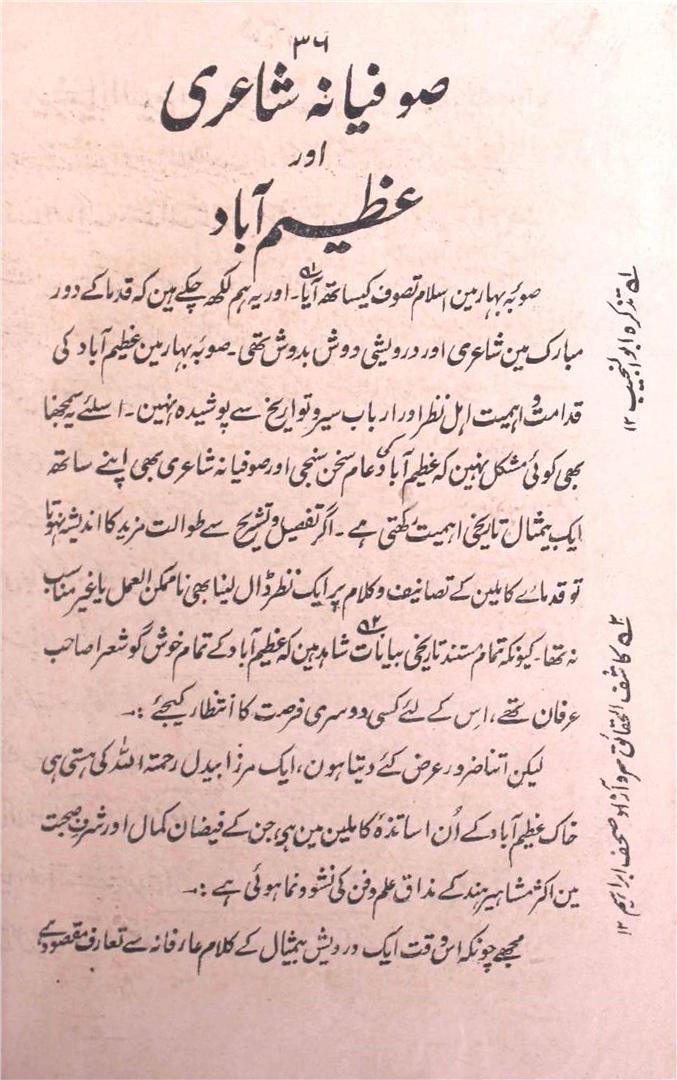 ۳۶
صوفیانہ شاعری
اور
عظیم آباد
صوبہ بہار مین اسلام تصوف کیساتھ آیا۔ اور یہ ہم لکھ چکے ہین کہ قدما کے دور
مبارک مین شاعری اور درویشی دوش بدوش تھی۔ صوبہ بہار مین عظیم آباد کی
قدامت و اہمیت اہل نظر اور ارباب سیر و تواریخ سے پوشیدہ نہین۔ اسلئے یہ سمجھنا
بھی کوئی مشکل نہین کہ عظیم آباد کی عام سخن سنجی اور صوفیانہ شاعری بھی اپنے ساتھ
ایک بیمثال تاریخی اہمیت رکھتی ہے۔ اگر تفصیل و تشریح سے طوالت مزید کا اندیشہ نہوتا
تو قدماے کاملین کے تصانیف و کلام پر ایک نظر ڈال لینا بھی ناممکن العمل یا غیر مناسب
نہ تھا۔ کیونکہ تمام مستند تاریخی بیانات شاہد ہین کہ عظیم آباد کے تمام خوش گو شعرا صاحب
عرفان تھے، اس کے لئے کسی دوسری فرصت کا انتظار کیجئے :۔
لیکن اتنا ضرور عرض کئے دیتا ہون، ایک مرزا بیدل رحمتہ اللہ کی ہستی ہی
خاک عظیم آباد کے اُن اساتذہ کاملین مین ہی جن کے فیضان کمال اور شرف صحبت
مین اکثر مشاہیر ہند کے مذاق علم و فن کی نشو و نما ہوئی ہے :۔
مجھے چونکہ اسوقت ایک درویش بیمثال کے کلام عارفانہ سے تعارف مقصود ہے
۱؎ تذکرہ ابوالنجیب ۱۲
۲؎ کاشف الحقائق سرو آزاد صحف ابراہیم ۱۲